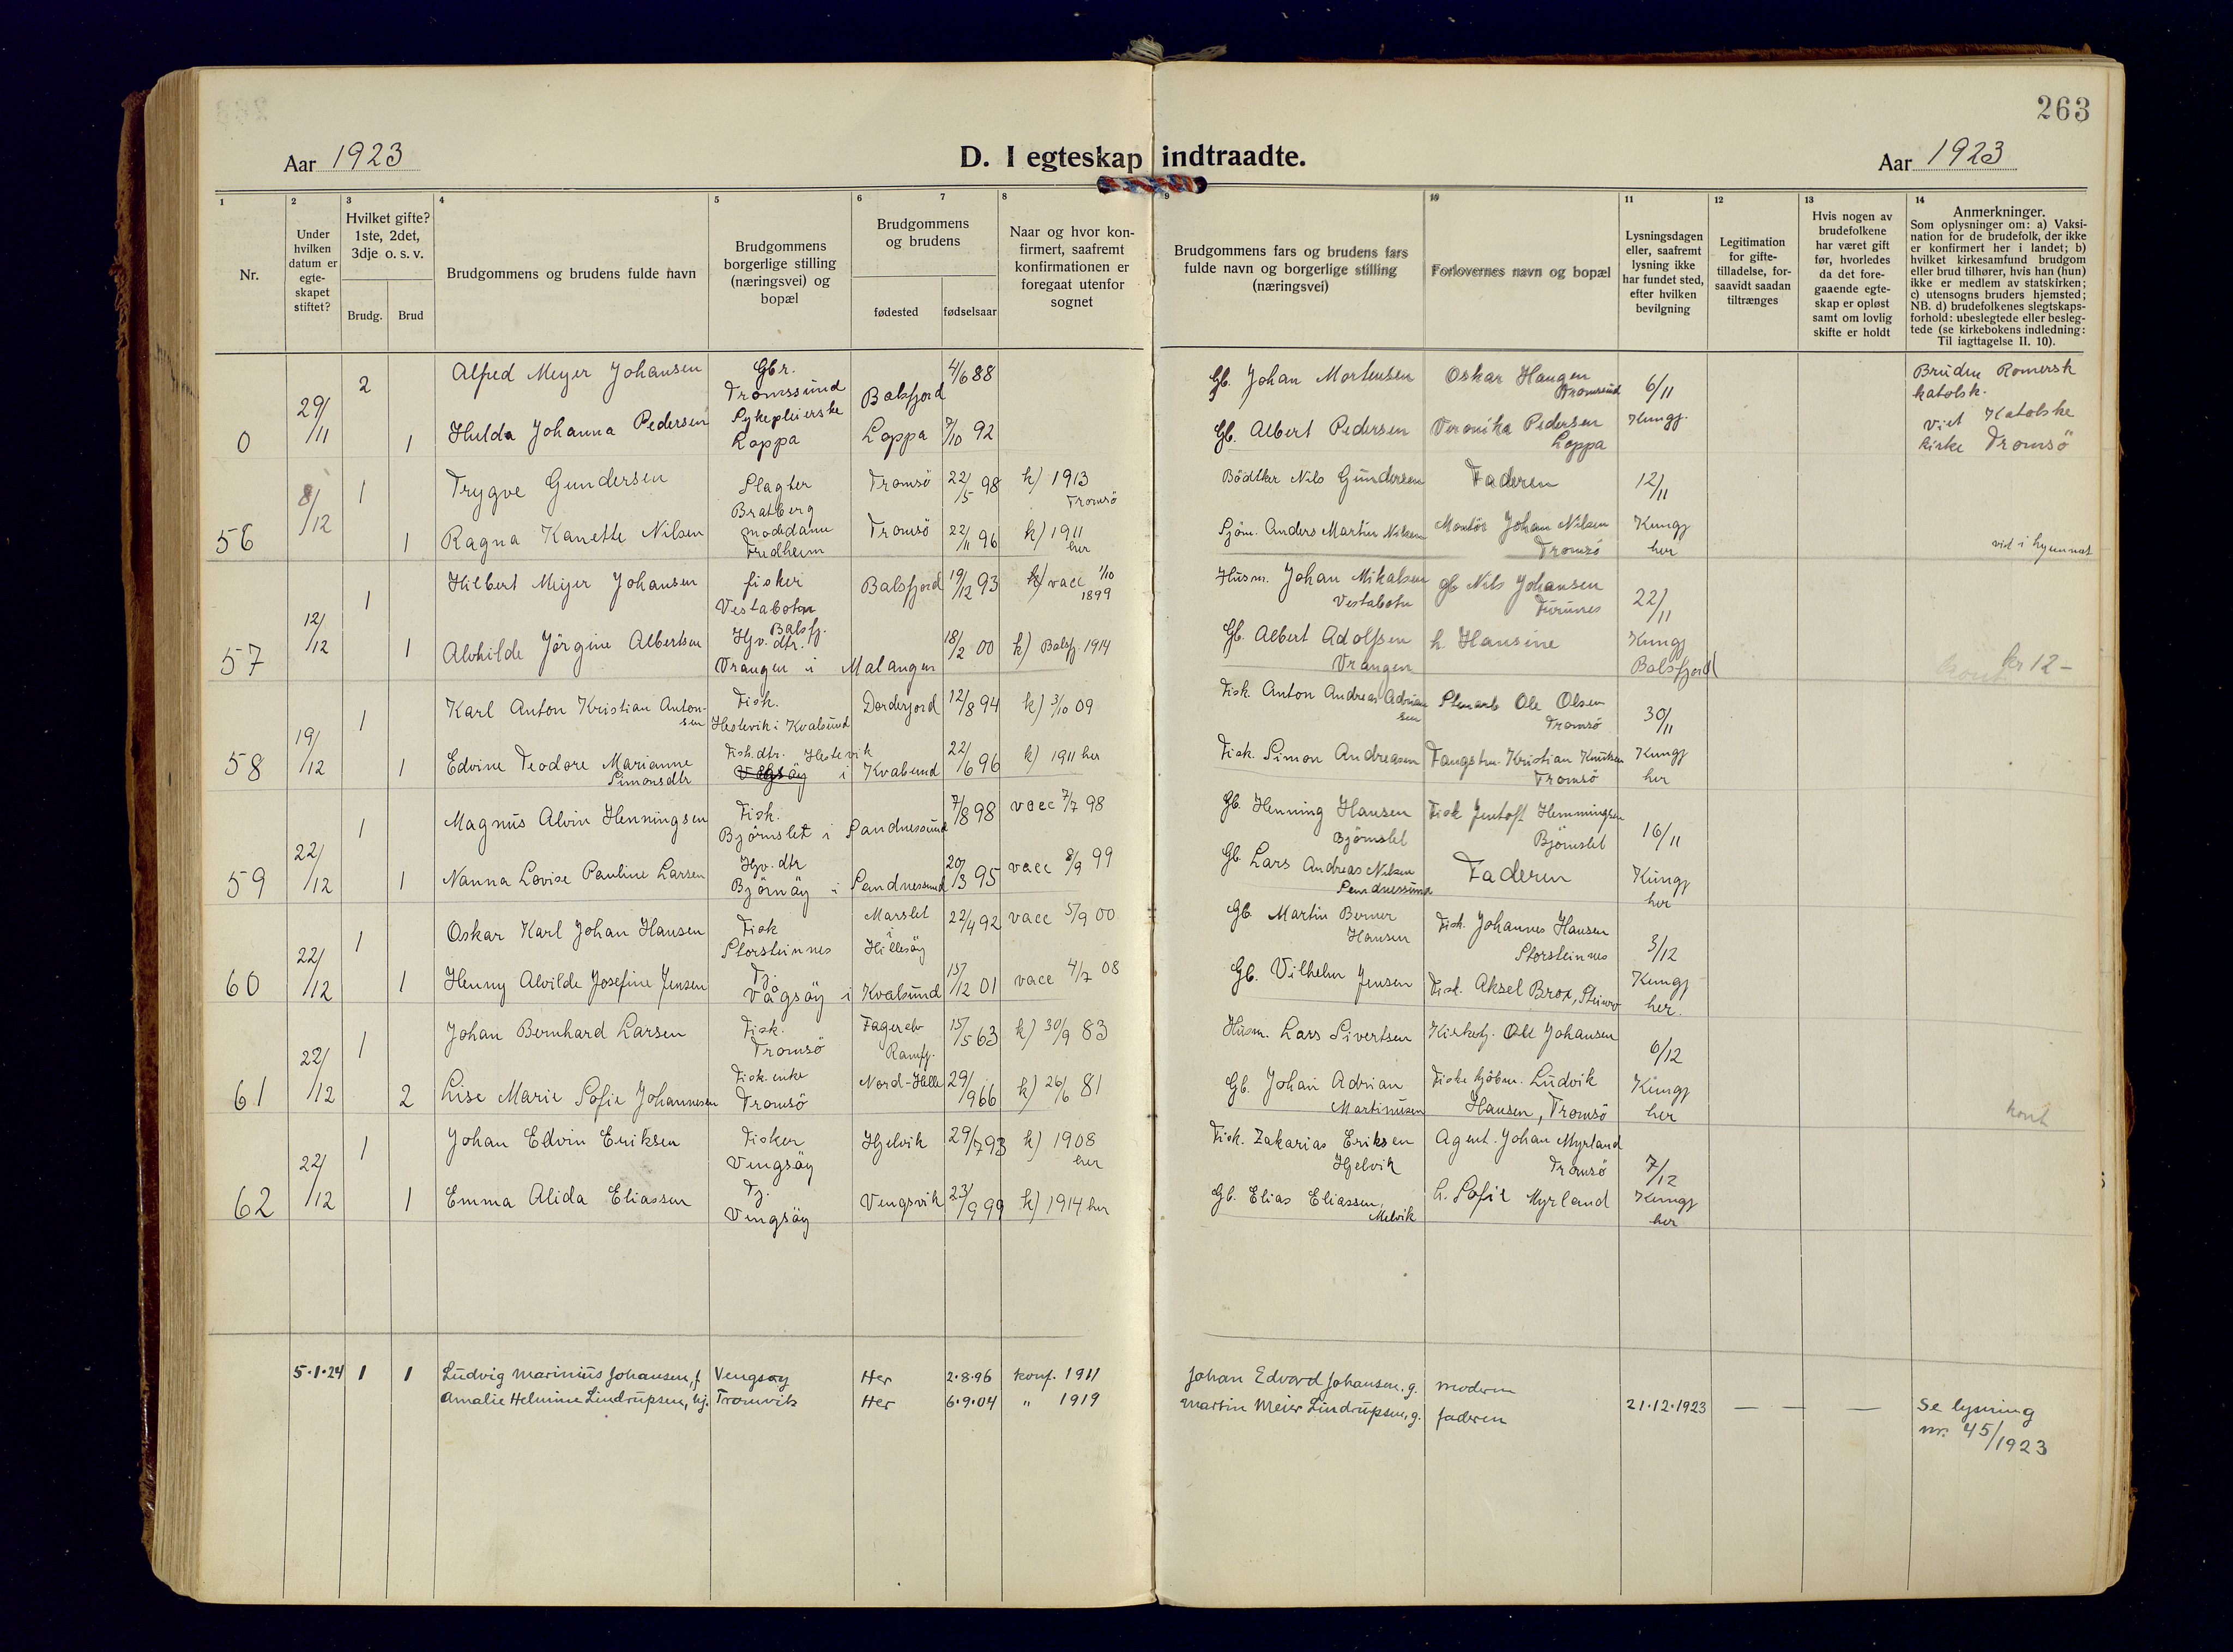 263
Aar 1923
D. I egteskap indtraadte.
Aar 1923
1
2
3
4
5
6
7
8
9
10
11
12
13
14
Nr.
Under
hvilken
datum er
egte-
skapet
stiftet?
Hvilket gifte?
1ste, 2det,
3dje o. s. v.
Brudg.
Brud
Brudgommens og brudens fulde navn
Brudgommens
borgerlige stilling
(næringsvei) og
bopæl
Brudgommens
og brudens
fødested
fødselsaar
Naar og hvor kon-
firmert, saafremt
konfirmationen er
foregaat utenfor
sognet
Brudgommens fars og brudens fars
fulde navn og borgerlige stilling
(næringsvei)
Forlovernes navn og bopæl
Lysningsdagen
eller, saafremt
lysning ikke
har fundet sted,
efter hvilken
bevilgning
Legitimation
for gifte-
tilladelse, for-
saavidt saadan
tiltrænges
Hvis nogen av
brudefolkene
har været gift
før, hvorledes
da det fore-
gaaende egte-
skap er opløst
samt om lovlig
skifte er holdt
Anmerkninger.
Som oplysninger om: a) Vaksi-
nation for de brudefolk, der ikke
er konfirmert her i landet; b)
hvilket kirkesamfund brudgom
eller brud tilhører, hvis han (hun)
ikke er medlem av statskirken;
c) utensogns bruders hjemsted;
NB. d) brudefolkenes slegtskaps-
forhold: ubeslegtede eller besleg-
tede (se kirkebokens indledning:
Til iagttagelse II. 10).
0
29/11
2
Alfred Meyer Johansen
Gbr.
Tromssund
Balsfjord
4/6 88
Gb. Johan Mortensen
Oskar Haugen
Tromssund
6/11
Bruden Romersk
katolsk.
1
Hulda Johanna Pedersen
Sykepleierske
Loppa
Loppa
7/10 92
Gb. Albert Pedersen
Veronika Pedersen
Loppa
Kungj.
Viet Katolske
kirke Tromsö
56
8/12
1
Trygve Gundersen
Slagter
Bratberg
Tromsö
22/5 98
k) 1913
Tromsö
Bödtker Nils Gundersen
Faderen
12/11
1
Ragna Kanette Nilsen
modedame
Fredheim
Tromsö
22/11 96
k) 1911
her
Sjöm. Anders Martin Nilsen
Montör Johan Nilsen
Tromsö
Kungj
her
57
12/12
1
Hilbert Meyer Johansen
fisker
Vestabotn
Balsfjord
19/12 93
k) vacc 1/10
1899
Husm. Johan Mikalsen
Vestabotn
gb Nils Johansen
22/11
1
Alvhilde Jörgine Albertsen
Balsfj.
Gv. dtr.
Vrangen i Malangen
18/2 00
k) Balsfj. 1914
Gb. Albert Adolfsen
Vrangen
h. Hansine
Kungj
Balsfjord
kr 12-
58
19/12
1
Karl Anton Kristian Anton-
sen
Fisk.
Hestevik i Kvalsund
Dorderjord
12/8 94
k) 3/10 09
Fisk. Anton Andreas Adrian
sen
Stenarb Ole Olsen
Tromsö
30/11
1
Edvine Teodore Marianne
Simonsdtr
Fisk. dtr. Hestevik
i Kvalsund
22/6 96
k) 1911 her
Fisk. Simon Andreasen
Fangstm. Kristian Knutsen
Tromsö
Kungj
her
59
22/12
1
Magnus Alvin Henningsen
Fisk.
Bjørnslet i Sandnessund
7/8 98
vacc 7/7 98
Gb. Henning Hansen
Bjömslet
Fisk Jentoft Hemmingsen
Bjömslet
16/11
1
Nanna Lovise Pauline Larsen
Gv. dtr
Björnöy i Sandnessund
20/3 95
vacc 8/9 99
Gb Lars Andreas Nilsen
Sandnessund
Faderen
Kungj
her
60
22/12
1
Oskar Karl Johan Hansen
Fisk
Storsteinnes
Marslet
i
Hillesöy
22/4 92
vacc 5/9 00
Gb. Martin Berner
Hansen
Fisk. Johannes Hansen
Storsteinnes
3/12
1
Henny Alvilde Josefine Jensen
Tj.
Vågsöy i Kvalsund
15/12 01
vacc 4/7 08
Gb. Vilhelm Jensen
Fisk. Aksel Brox,
Kungj
her.
61
22/12
1
Johan Bernhard Larsen
Fisk.
Tromsö
Fagerelv
Ramfj.
15/5 63
k) 30/9 83
Husm. Lars Sivertsen
Kirketj. Ole Johansen
6/12
2
Lise Marie Sofie Johannesen
Fisk. enke
Tromsö
Nord-Hella
29/9 66
k) 26/6 81
Gb. Johan Adrian
Martinusen
Fiske kjöbm. Ludvik
Hansen, Tromsö
Kungj
her
62
22/12
1
Johan Edvin Eriksen
Fisker
Vengsöy
Hjelvik
29/7 93
k) 1908
her
Fisk. Zakarias Eriksen
Hjelvik
Agent. Johan Myrland
Tromsö
7/12
1
Emma Alida Eliassen
Tj.
Vengsöy
Vengsvik
23/9 99
k) 1914 her
Gb. Elias Eliassen,
Melvik
h. Sofie Myrland
Kungj
her
5.1.24
1
1
Ludvig Marinius Johansen, f
Vengsøy
Her
2.8.96
konf. 1911
Johan Edvard Johansen, g.
moderen
Amalie Helmine Lindrupsen, hj.
Tromvik
Her
6.9.04
" 1919
Martin Meier Lindrupsen, g.
faderen
21.12.1923
— — —
Se lysning
nr. 45/1923